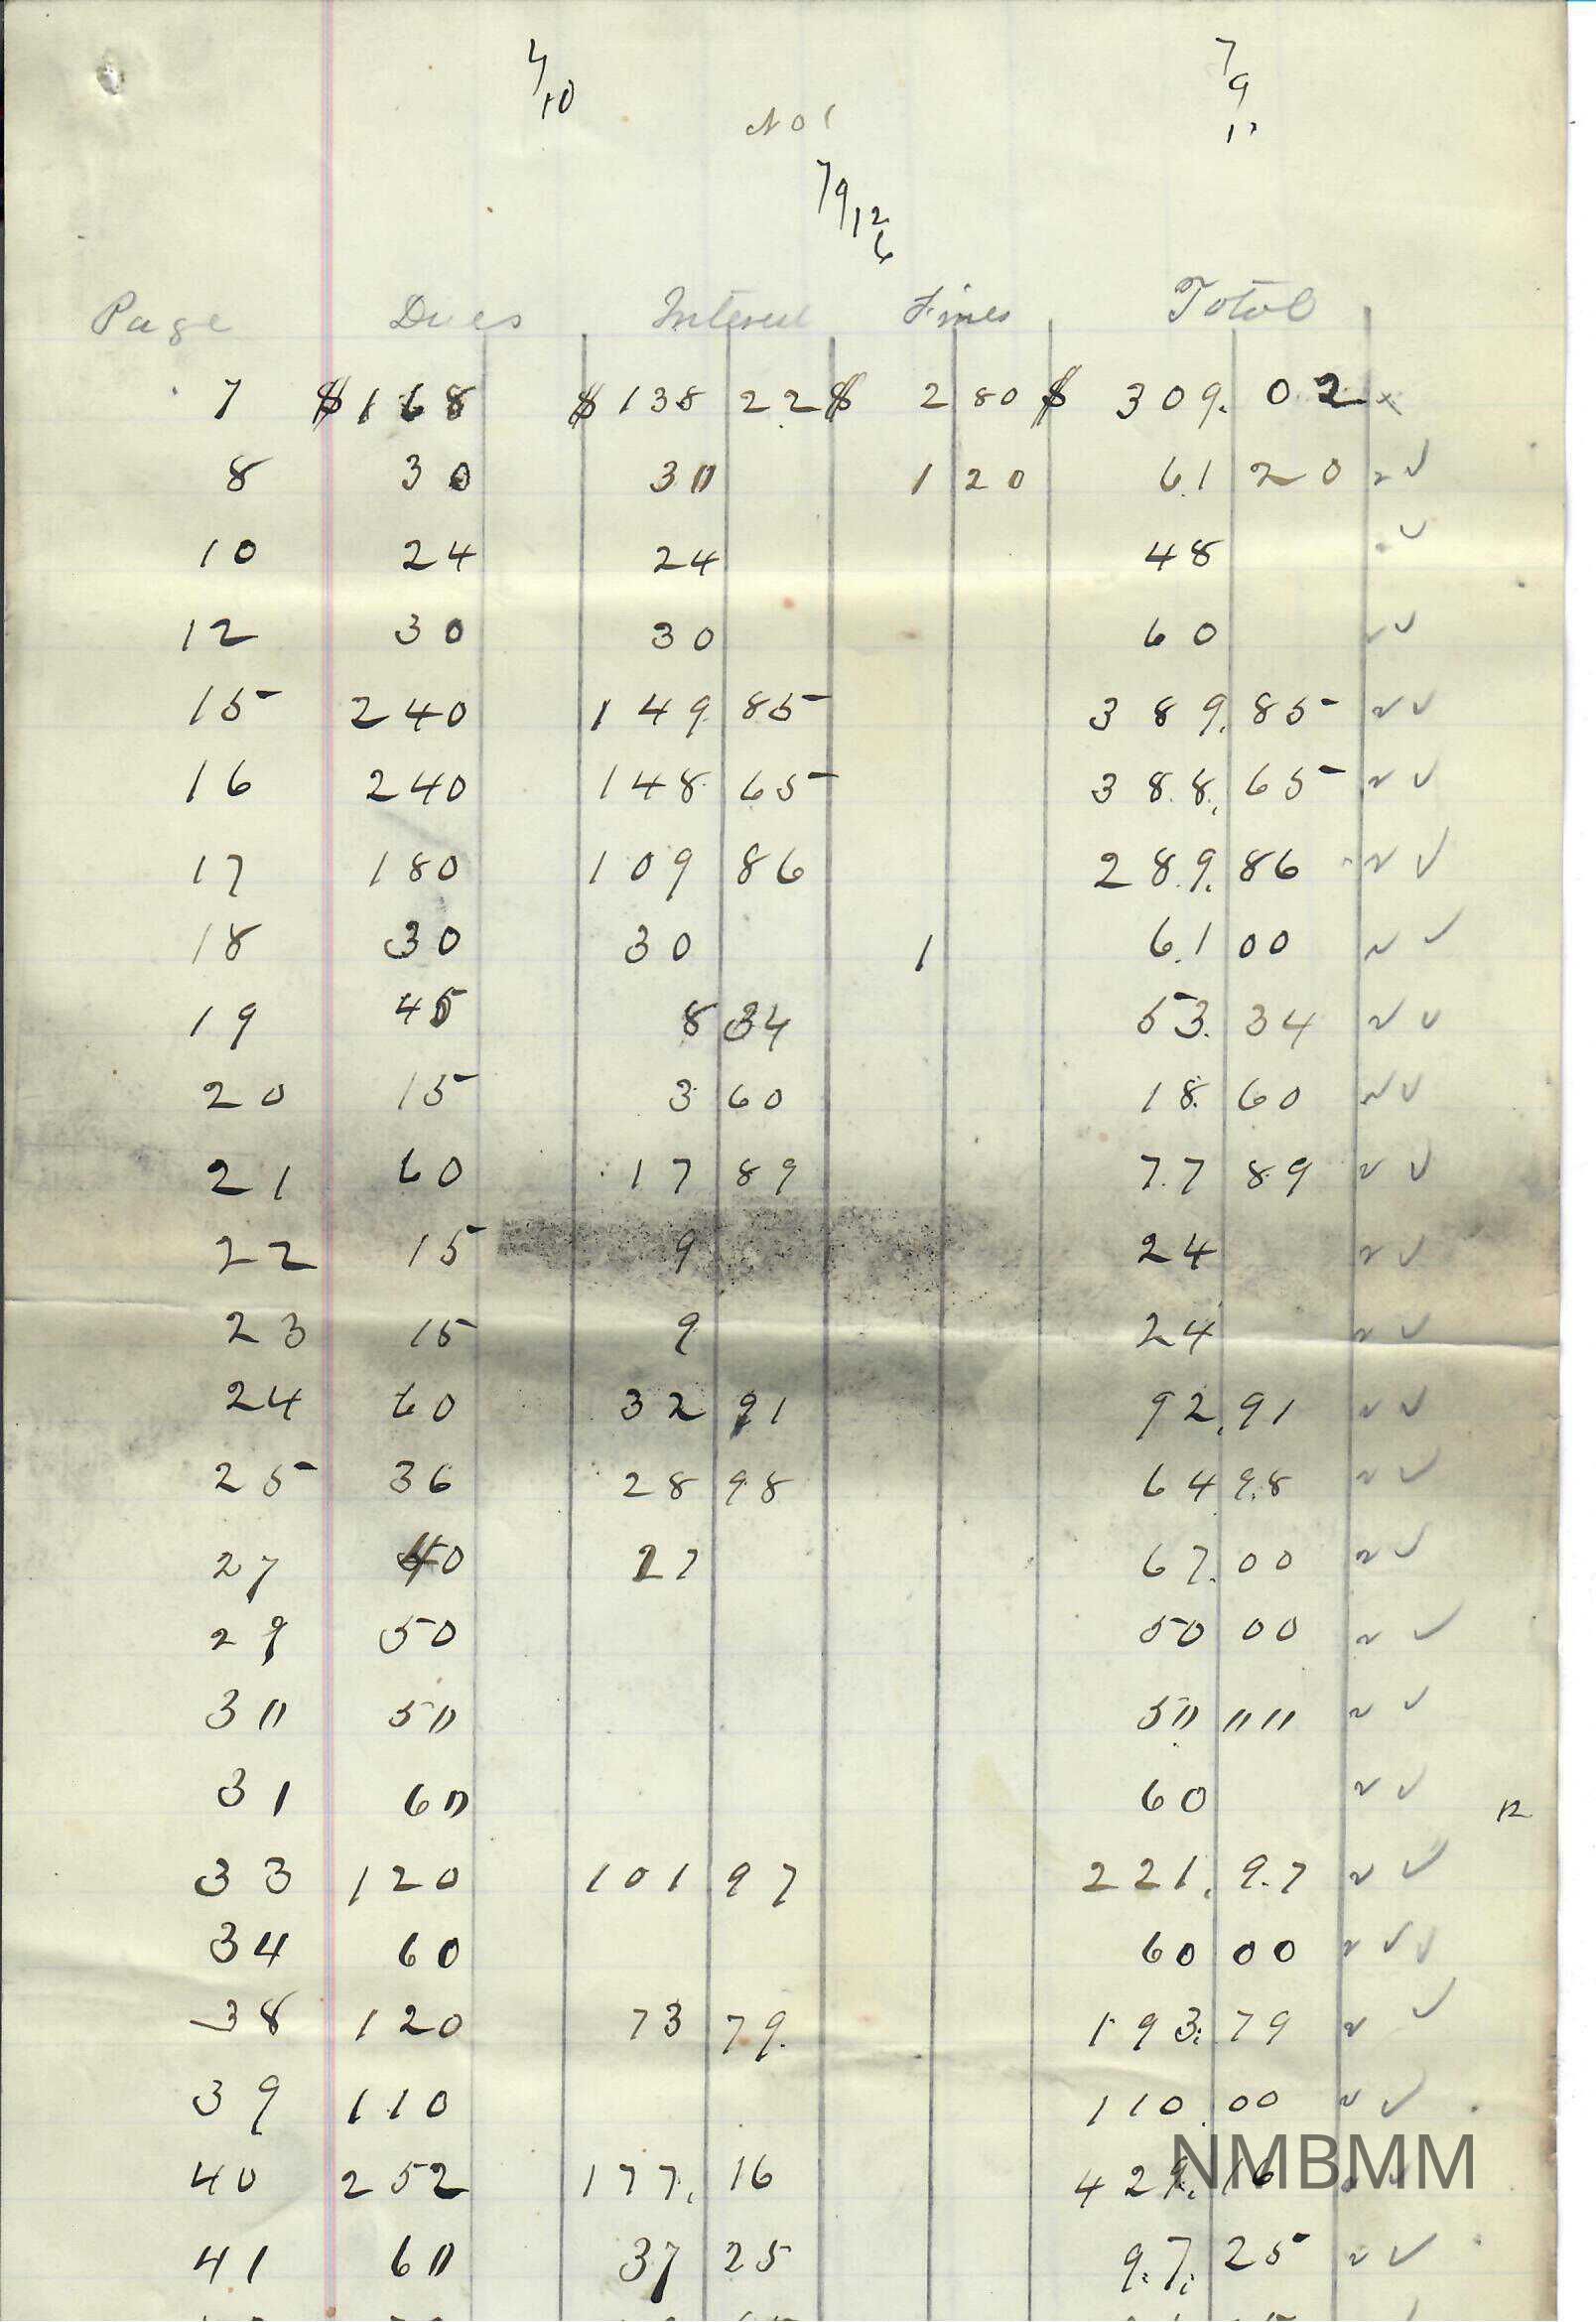 4/10
7
9
12
No 1
7/9/12
6
Page Dues Interest Fines Total
7 $168 $138 22 $ 2 80 $ 309. 02
8 30 30 1 20 61 20 ✓✓
10 24 24 48 ✓
12 30 30 60 ✓✓
15 240 149 85 389. 85 ✓✓
16 240 148 65 388. 65 ✓✓
17 180 109 86 289. 86 ✓✓
18 30 30 1 61 00 ✓✓
19 45 8 34 53. 34 ✓✓
20 15 3 60 18. 60 ✓✓
21 60 17 89 77 89 ✓✓
22 15 9 24 ✓✓
23 15 9 24 ✓✓
24 60 32 91 92. 91 ✓✓
25 36 28 98 64 98 ✓✓
27 40 27 67. 00 ✓✓
29 50 50 00 ✓✓
30 50 50 00 ✓✓
31 60 60 ✓✓
12
33 120 101 97 221. 97 ✓✓
34 60 60 00 ✓✓✓
38 120 73 79. 193. 79 ✓✓
39 110 110. 00 ✓✓
40 252 177. 16 429. 16
NMBMM
41 60 37 25 97. 25 ✓✓